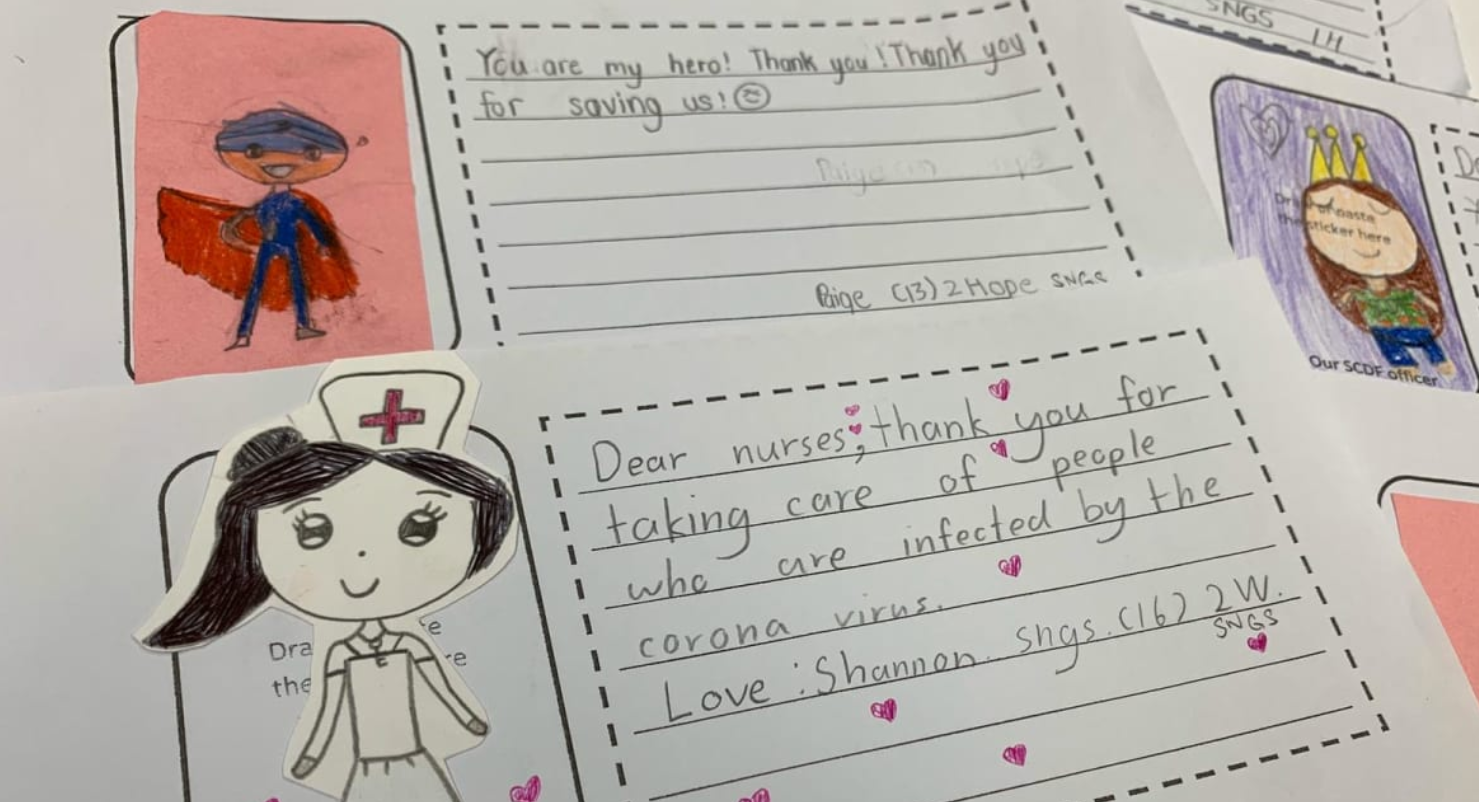 You are my hero! Thank you! Thank you
for saving us!
Paige (13) 2 Hope SNGS
SNGS
1H
Draw or paste
the sticker here
Our SCDF officer
Dear nurses, thank you for
taking care of people
who are infected by the
corona virus.
Love : Shannon. sngs. (16) 2 W.
SNGS
Dra
the
re